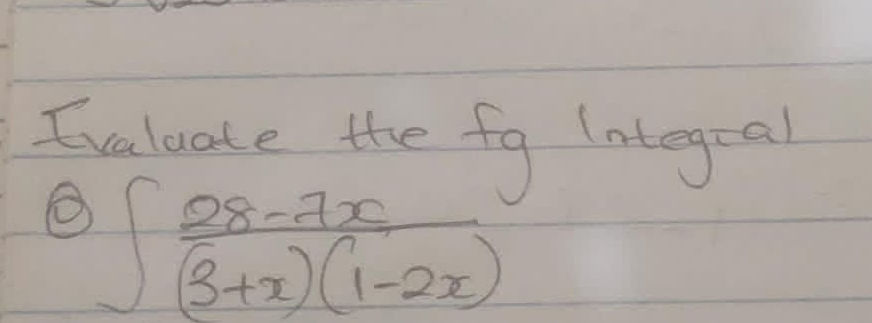 Evaluate the fg Integral
∫ 28-7x
(3+x)(1-2x)